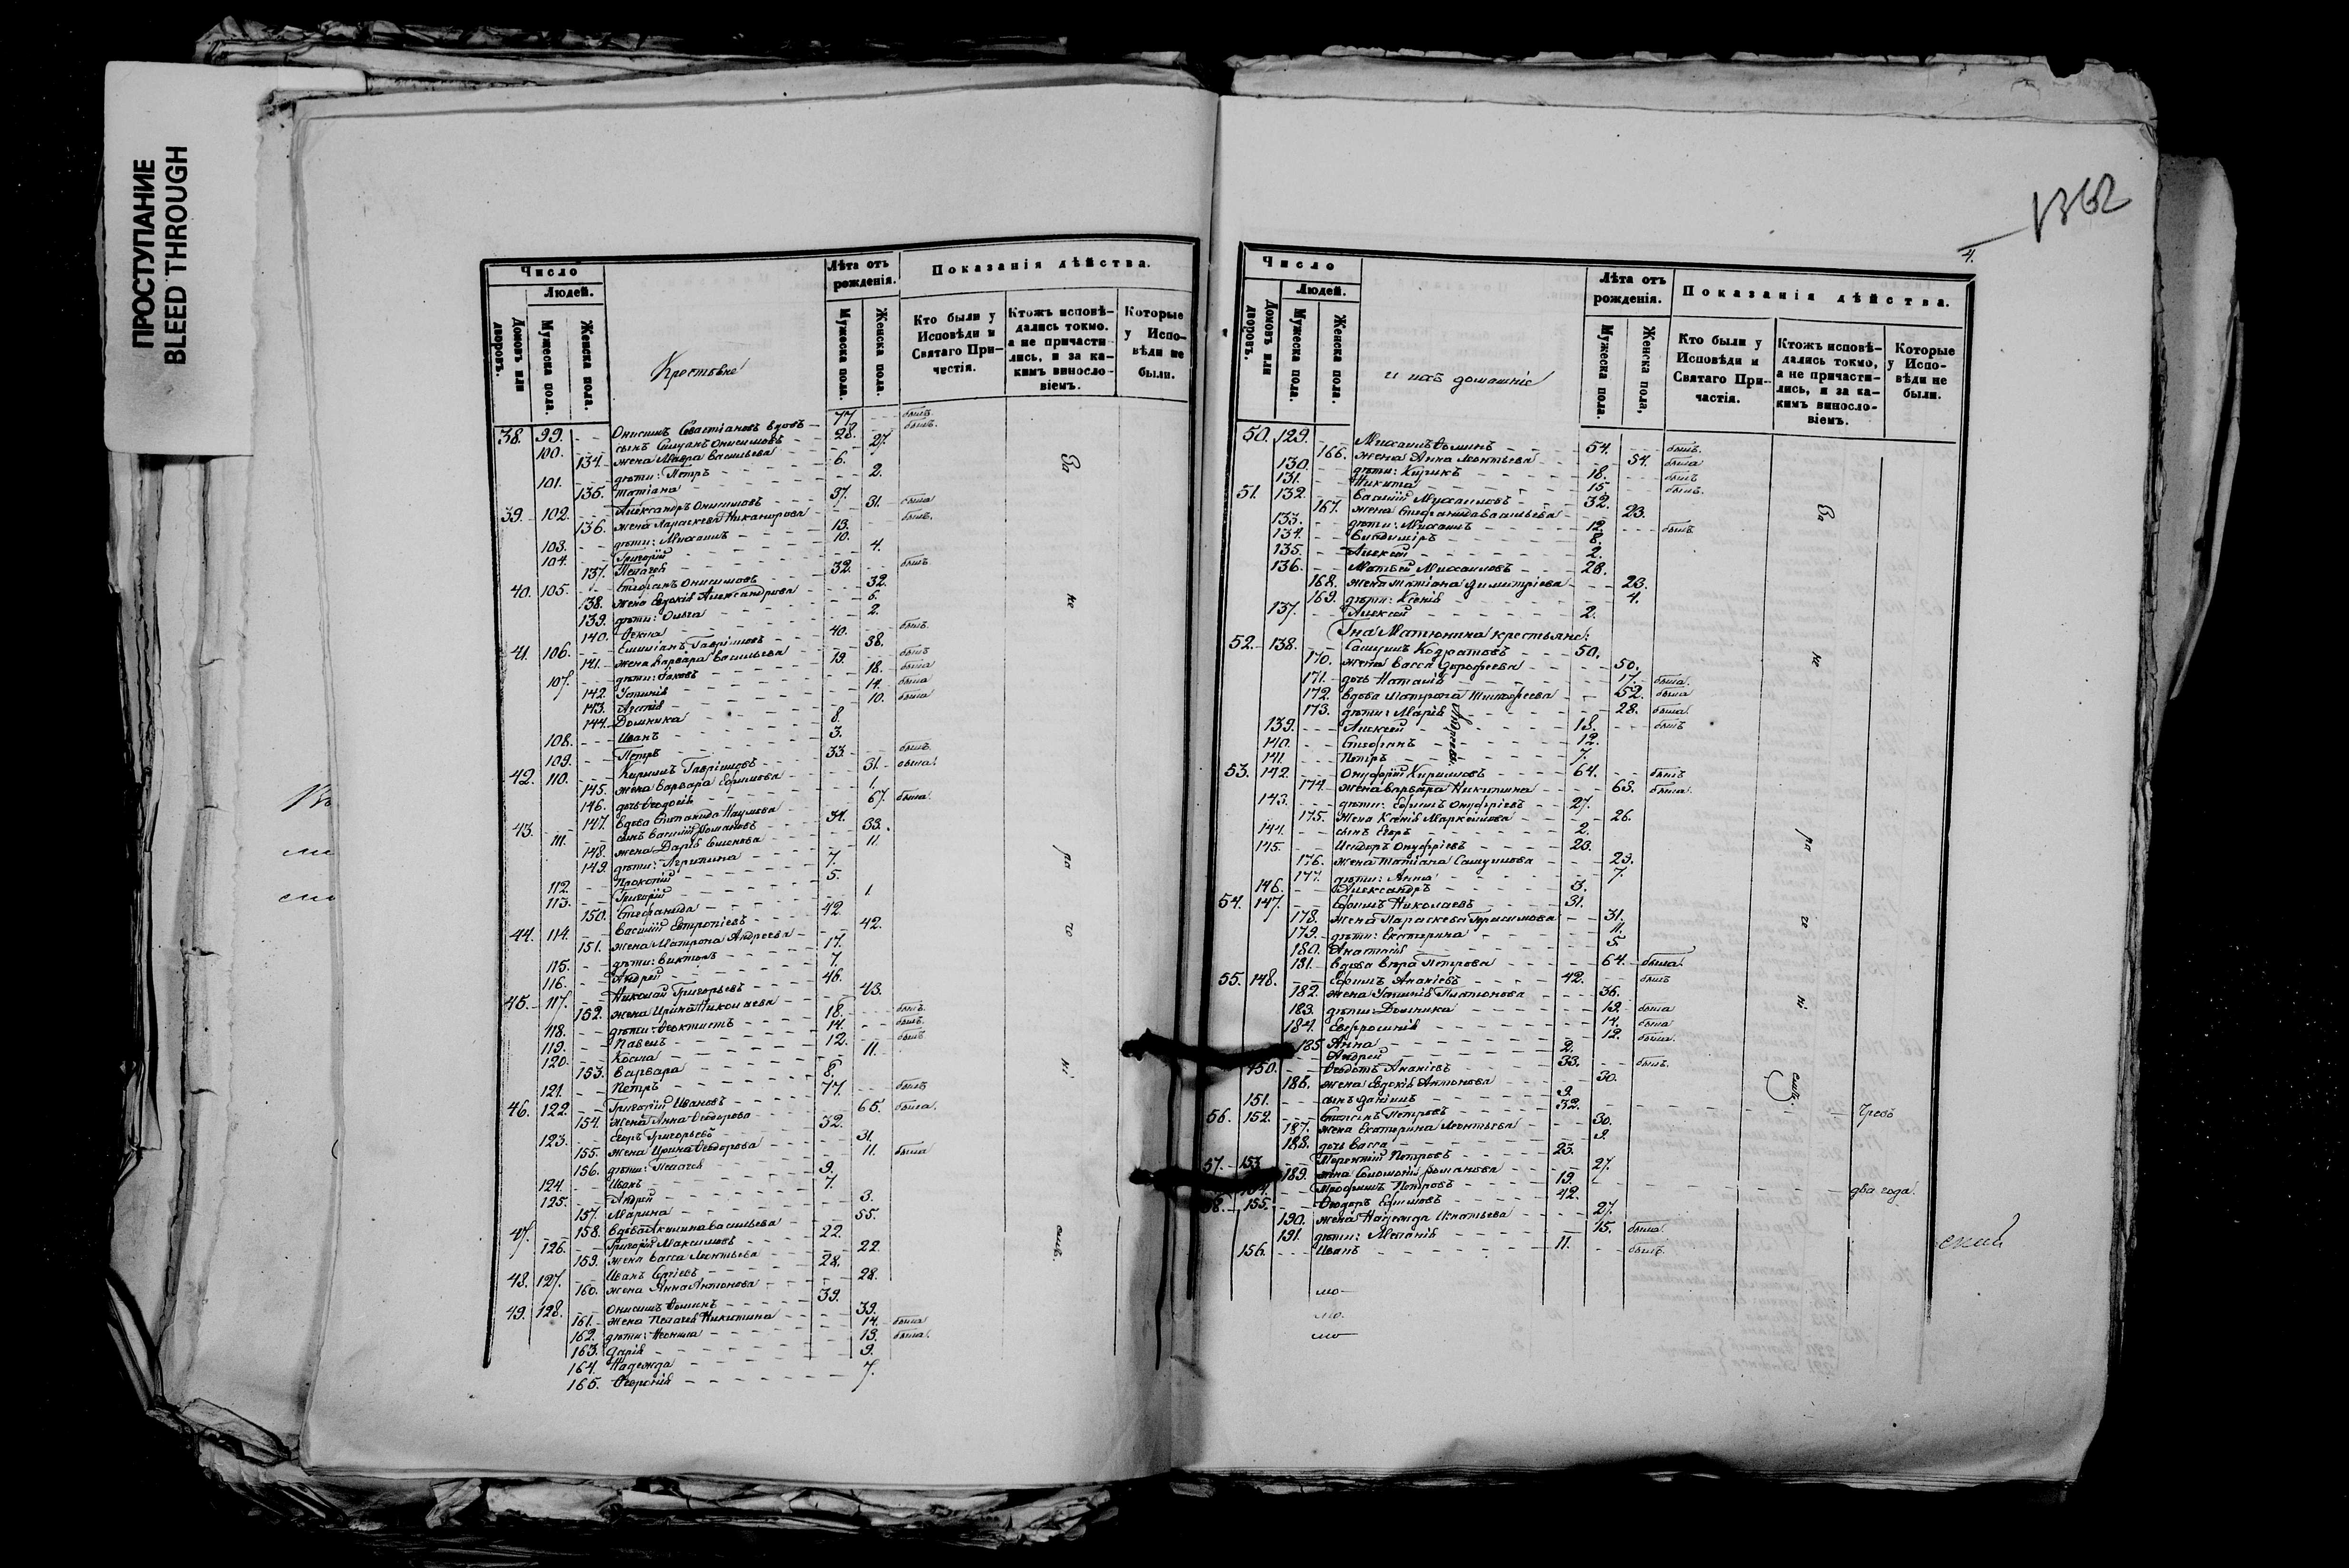 ПРОСТУПАНИЕ
BLEED THROUGH
Число
Людей.
Домовъ или дворовъ.
Мужеска пола.
Женска пола.
Крестьяне
Лѣта отъ рожденія.
Мужеска пола.
Женска пола.
Показанія дѣйства.
Кто были у Исповѣди и Святаго Причастія.
Ктожъ исповѣдались токмо, а не причастились, и за какимъ винословіемъ.
Которые у Исповѣди не были.
38. 99. Онисимъ Севастіановъ вдовъ 77. былъ
100. сынъ Силуанъ Онисимовъ 28. былъ.
134. жена Мавра Васильева 27.
101. дѣти: Петръ 6.
135. Татіана 2.
39. 102. Александръ Онисимовъ 37.
136. жена Параскева Никанорова 31. была
103. дѣти: Михаилъ 13. былъ.
104. Григорій 10.
137. Пелагея 4.
40. 105. Стефанъ Онисимовъ 32. былъ
138. жена Евдокія Александрова 32.
139. дѣти: Ольга 6.
140. Фекла 2.
41. 106. Емиліанъ Гавріиловъ 40. былъ
141. жена Варвара Васильева 38.
107. дѣти: Іаковъ 19. былъ
142. Устинія 18. была
143. Агапія 14. была
144. Домника 10. была
108. Иванъ 8.
109. Петръ 3.
42. 110. Кириллъ Гавріиловъ 33. былъ
145. жена Варвара Ефимова 31. была.
146. дочь Феодосія 1.
43. 147. вдова Степанида Наумова 67. была.
111. сынъ Василій Романовъ 34.
148. жена Дарія 33.
149. дѣти: Агрипина 11.
112. Прокопій 7.
113. Григорій 5.
150. Стефанида 1.
44. 114. Василій Евтропіевъ 42.
151. жена Матрона Андреева 42.
115. дѣти: Викторъ 17.
116. Андрей 7.
45. 117. Николай Григорьевъ 46.
152. жена Ирина Николаева 43.
118. дѣти: Феоктистъ 18. былъ.
119. Павелъ 14. былъ.
120. Косма 12. былъ
153. Варвара 11.
121. Петръ 8.
46. 122. Григорій Ивановъ 77. былъ
154. жена Анна Феодорова 65. была.
123. Егоръ Григорьевъ 32.
155. жена Ирина Феодорова 31.
156. дѣти: Пелагея 11. была
124. Иванъ 9.
125. Андрей 7.
157. Марина 3.
47. 158. вдова Акилина Васильева 55.
126. Григорій Максимовъ 22.
159. жена Васса Леонтьева 22.
48. 127. Иванъ Сергіевъ 28.
160. жена Анна Антонова 28.
49. 128. Онисимъ Фоминъ 39.
161. жена Пелагея Никитина 39.
162. дѣти: 14. была
163. Дарія 13. была.
164. Надежда 9.
165. Февронія 7.
За не ра че ні емъ.
1362
4.
Число
Людей.
Домовъ или дворовъ.
Мужеска пола.
Женска пола.
и ихъ домашніе
Лѣта отъ рожденія.
Мужеска пола.
Женска пола,
Показанія дѣйства.
Кто были у Исповѣди и Святаго Причастія.
Ктожъ исповѣдались токмо, а не причастились, и за какимъ винословіемъ.
Которые у Исповѣди не были.
50. 129. Михаилъ Фоминъ 54. былъ.
166. жена Анна Леонтьева 54. была
130. дѣти: Кирикъ 18. былъ
131. Никита 15. былъ.
51. 132. Василій Михаиловъ 32.
167. жена Стефанида Васильева 23.
133. дѣти: Михаилъ 12. былъ
134. Владиміръ 8.
135. Алексей 2.
136. Матвей Михаиловъ 28.
168. жена Татіана Димитріева 23.
169. дѣти: Ксенія 4.
137. Алексей 2.
Гна Матюнина крестьяне:
52. 138. Самуилъ Кодратовъ 50.
170. жена Васса Дорофеева 50.
171. дочь Наталія 17. была.
172. вдова Матрона Тимофеева 52. была
173. дѣти: Марія 28. была.
139. Алексей 18. былъ
140. Стефанъ 12.
141. Петръ 7.
Андреевы
53. 142. Онуфрій Кирилловъ 64. былъ
174. жена Варвара Никитина 63. была.
143. дѣти: Ефимъ Онуфріевъ 27.
175. жена Ксенія Маркеллова 26.
144. сынъ Егоръ 2.
145. Исидоръ Онуфріевъ 23.
176. жена Татіана Самуилова 23.
177. дѣти: Анна 7.
146. Александръ 3.
54. 147. Ефимъ Николаевъ 31.
178. жена Параскева Герасимова 31.
179. дѣти: Екатерина 11.
180. Анастасія 5.
181. вдова Вера Петрова 64. была.
55. 148. Ефимъ Ананіевъ 42. былъ
182. жена Устинія Платонова 36.
183. дѣти: Домника 19. была
184. Евфросинія 14. была
185. Анна 12. была.
Андрей 2.
150. Феодотъ Ананіевъ 33. былъ.
186. жена Евдокія Антонова 30.
151. сынъ Даніилъ 9.
56. 152. Степанъ Петровъ 32. Чрезъ
187. жена Екатерина Леонтьева 30.
188. дочь Васса 9.
57. 153. Терентій Петровъ 23.
189. жена Соломонія Романова 27.
Трофимъ Петровъ 19. два года.
155. Феодоръ Ефимовъ 42.
190. жена Надежда Игнатьева 27.
191. дѣти: Меланія 15. была.
156. Иванъ 11. былъ
За не ра че ні емъ.